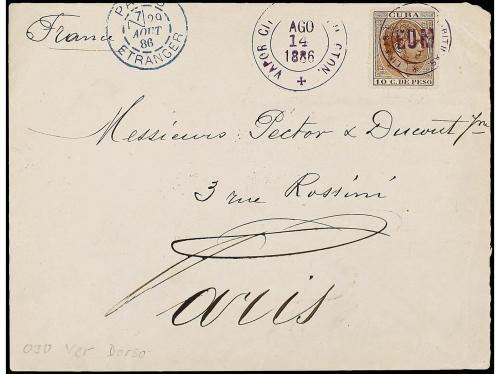 France
7E 29
AOUT
86
ETRANGER
VAPOR
AGO
14
1886
CTON.
CUBA
10 C. DE PESO
Messieurs Pector & Ducout Jne
3 rue Rossini
Paris
OJO Ver Dorso